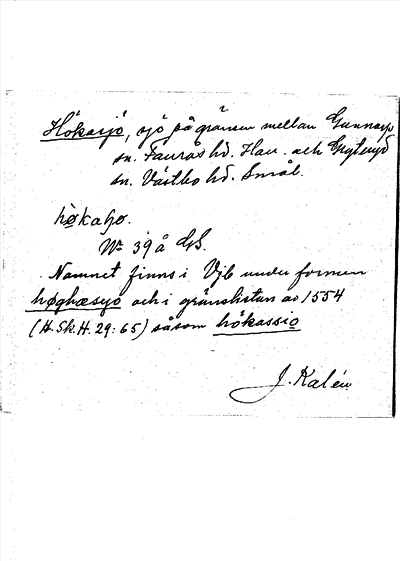 Hökasjö, sjö på gränsen mellan Gunnarp
sn. Faurås hd. Hall. och Gryteryd
sn. Västbo hd. Smål.
høkaʃø.
Nr 39 å GS.
Namnet finns i Vjb under formen
høghæsyo och i gränslistan av 1554
(H.Sk.H. 29:65) såsom hökassio
J. Kalén